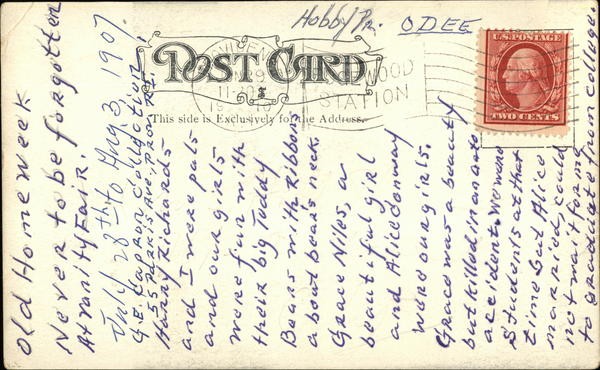 Hobby Pr. ODEE
POST CARD
This side is Exclusively for the Address.
STATION
U.S. POSTAGE
TWO CENTS
Old Home week
Never to be forgotten
At Vanity Fair.
July 28th to Aug 3, 1907.
G.E. Capron Collection
55 Ave, Prov. R.I.
Harry Richards
and I were pals
and our girls
were fun with
their big Teddy
Bears with Ribbons
about bear's neck.
Grace Niles, a
beautiful girl
and Alice Conway
were our girls.
Grace was a beauty
but killed in an auto
accident. We were
students at that
time but Alice
married, could
not wait for me
to graduate from college.